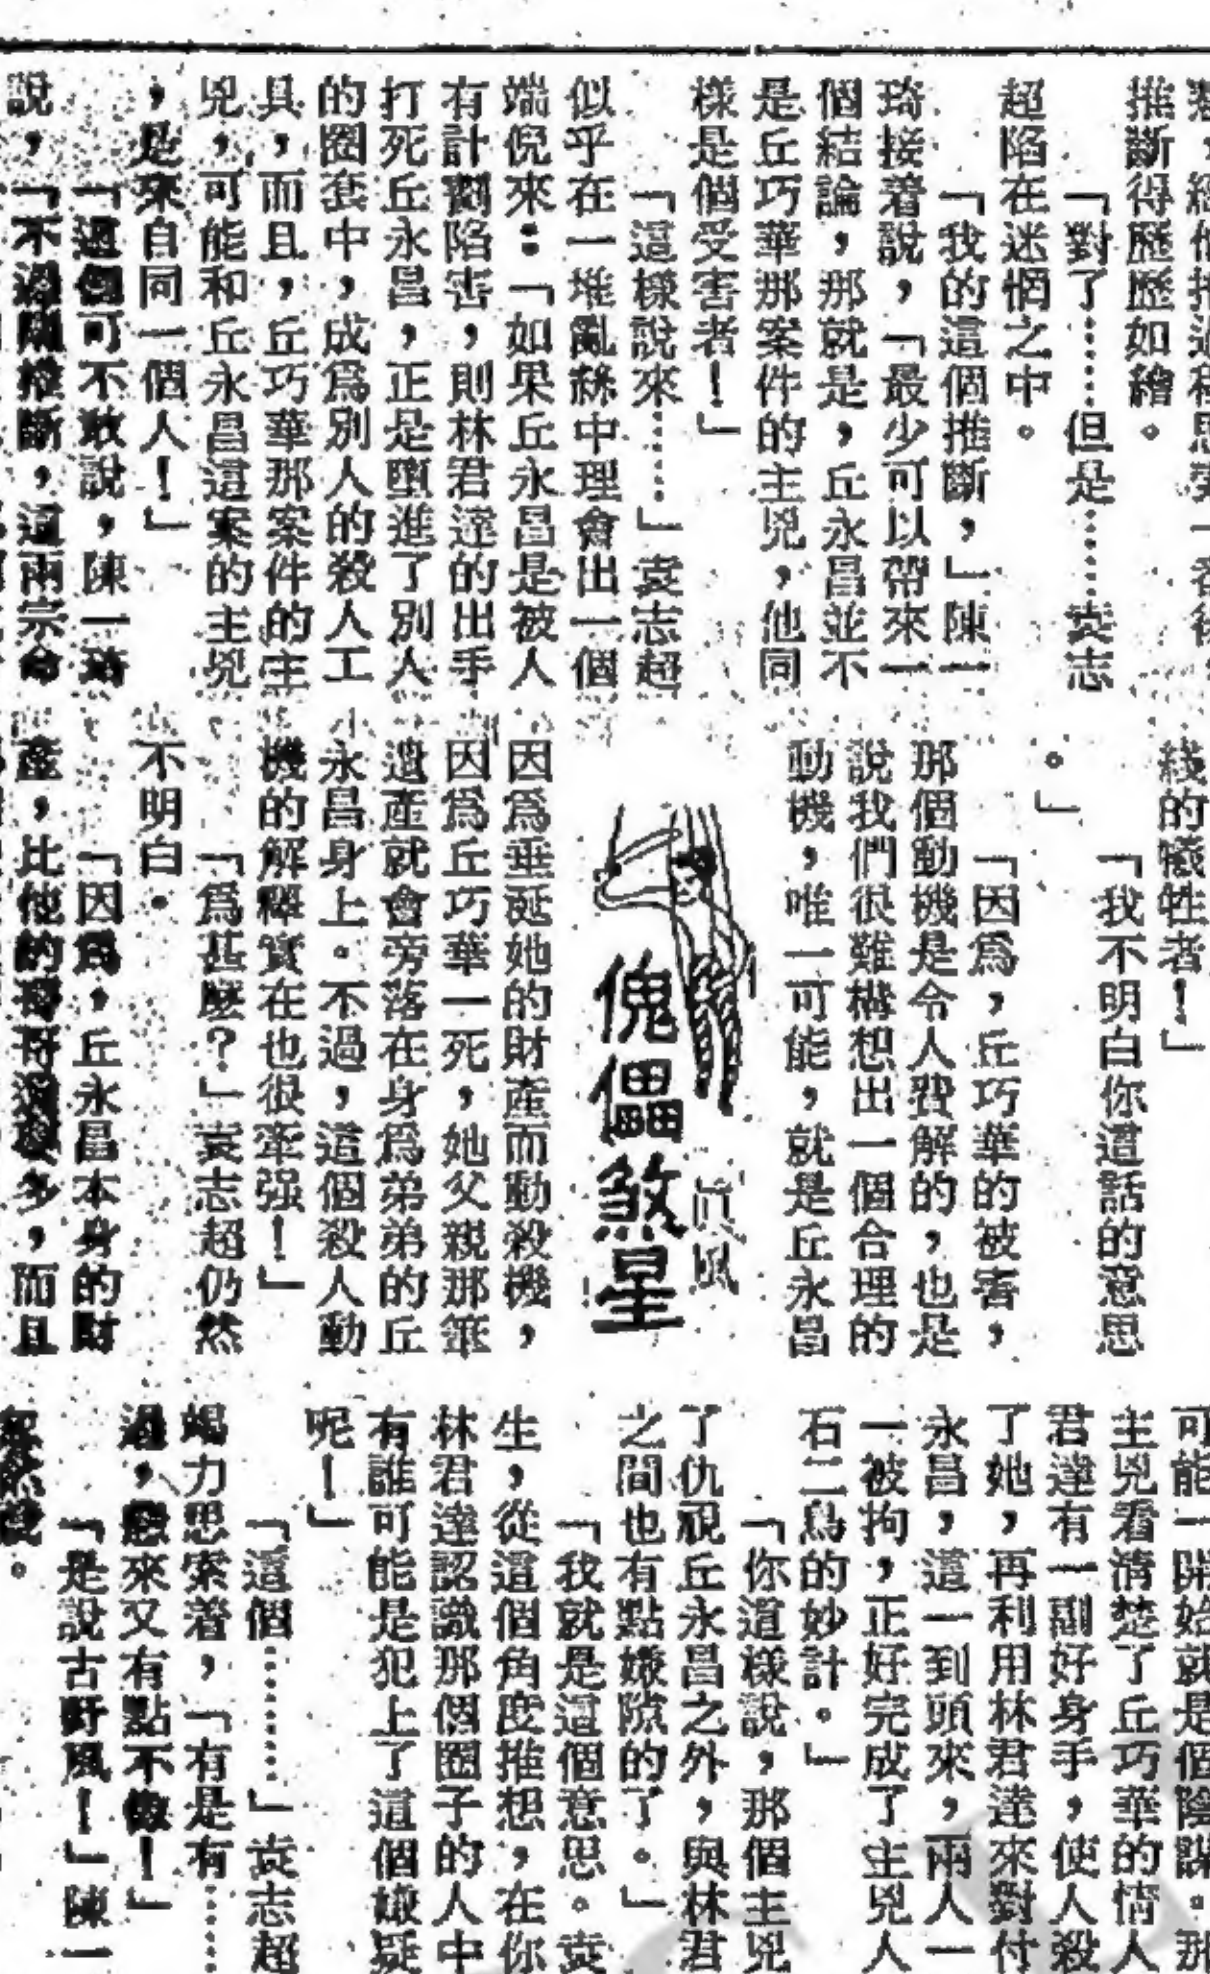 推斷得歷歷如繪。
「對了………但是………袁志
超陷在迷惘之中。
「我的這個推斷,」陳一
琦接着說,「最少可以帶來一
個結論,那就是,丘永昌並不
是丘巧華那案件的主兇,他同
樣是個受害者!」
「這樣說來………」袁志超
似乎在一堆亂絲中理會出一個
端倪來:「如果丘永昌是被人
有計劃陷害,則林君達的出手
打死丘永昌,正是墮進了別人
的圈套中,成爲別人的殺人工
具,而且,丘巧華那案件的主
兇,可能和丘永昌這案的主兇
,是來自同一個人!」
「這個可不敢說,陳一琦
說,「不過照推斷,這兩宗命
綫的犧牲者!」
「我不明白你這話的意思
。」
「因爲,丘巧華的被害,
那個動機是令人費解的,也是
說我們很難構想出一個合理的
動機,唯一可能,就是丘永昌
傀儡煞星
眞風
因爲垂涎她的財產而動殺機,
因爲丘巧華一死,她父親那筆
遺產就會旁落在身爲弟弟的丘
永昌身上。不過,這個殺人動
機的解釋實在也很牽强!」
「爲甚麼?」袁志超仍然
不明白。
「因爲,丘永昌本身的財
產,比他的哥哥多,而且
可能一開始就是個陰謀。那
主兇看清楚了丘巧華的情人
君達有一副好身手,使人殺
了她,再利用林君達來對付
永昌,這一到頭來,兩人一
一被拘,正好完成了主兇人
石二鳥的妙計。」
「你這樣說,那個主兇
了仇視丘永昌之外,與林君
之間也有點嫌隙的了。」
「我就是這個意思。袁
生,從這個角度推想,在你
林君達認識那個圈子的人中
有誰可能是犯上了這個嫌疑
呢!」
「這個………」袁志超
竭力思索着,「有是有………
過,想來又有點不像!」
「是說古野風!」陳一